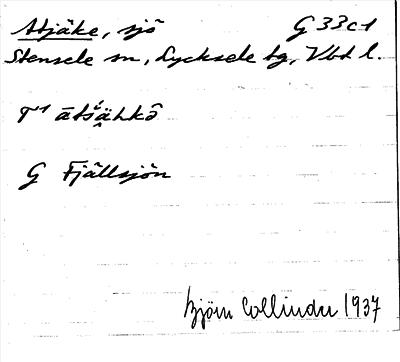 Atjäke, sjö G 33c1
Stensele sn, Lycksele tg, Vbt l.
G Fjällsjön
Björn Collinder 1937